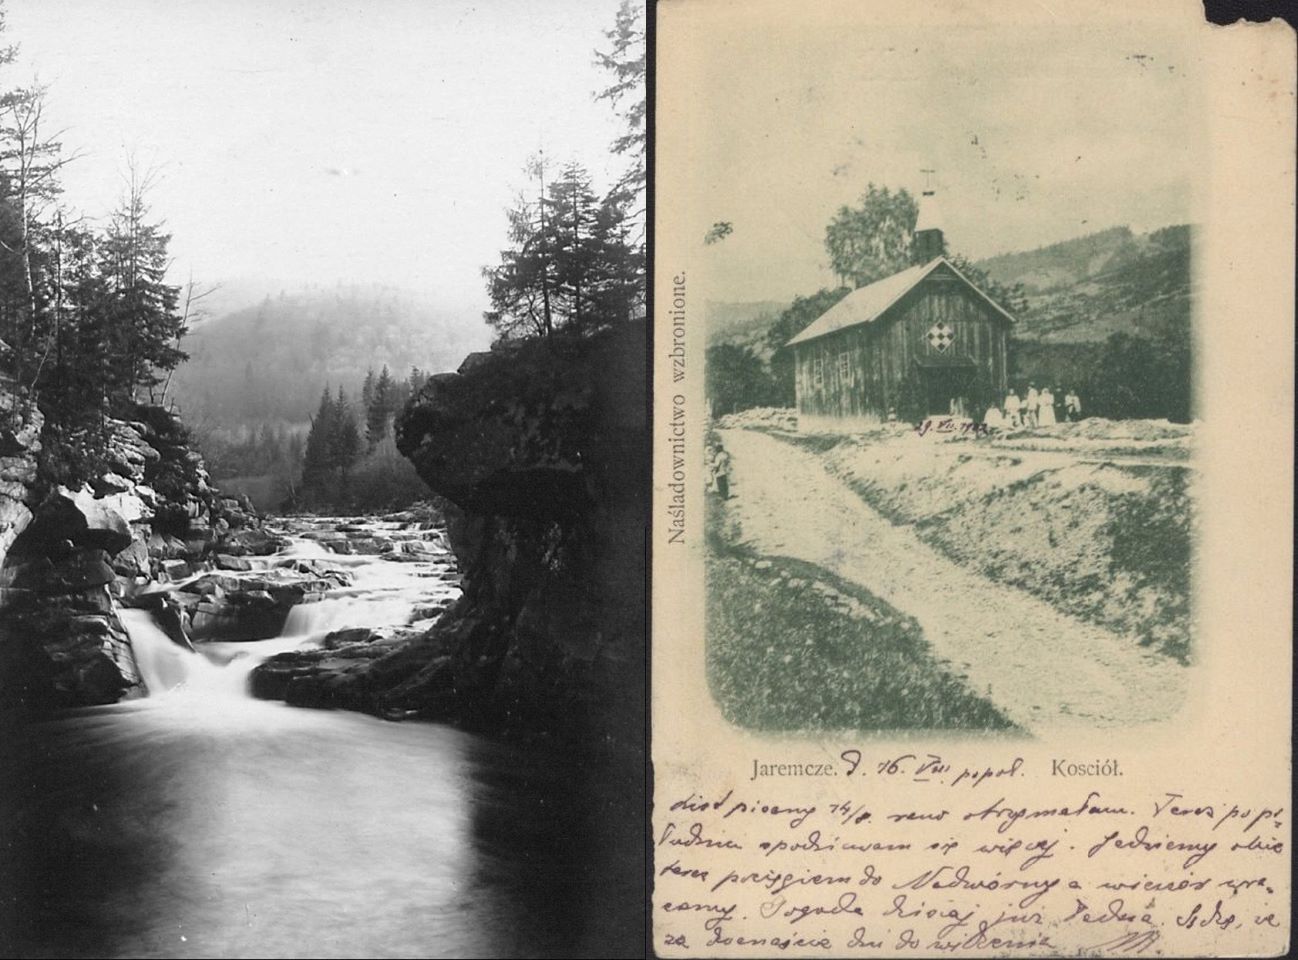 Naśladownictwo wzbronione.
29. VII. 190
Jaremcze. d. 16. VIII popoł. Kosciół.
List pisany 14/8. rano otrzymałam. Teraz po po-
łudniu spodziewam się więcej. Jedziemy obie
teraz pociągiem do Nadwórny a wieczór wra-
camy. Pogoda dzisiaj już ładna. Sądzę, że
za dwanaście dni do widzenia